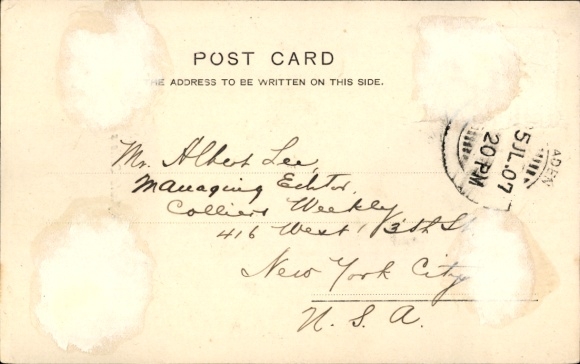 POST CARD
THE ADDRESS TO BE WRITTEN ON THIS SIDE.
ADEN
5 JL.07
20 PM
Mr. Albert Lee,
Managing Editor,
Colliers Weekly
416 West 13th St
New York City
U. S. A.